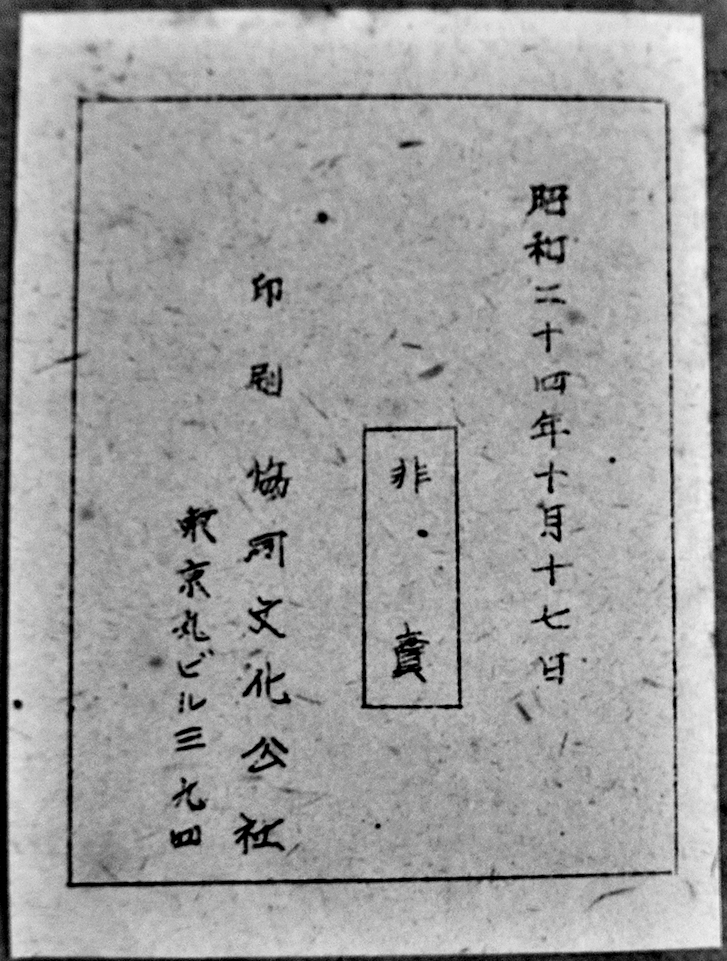 昭和二十四年十月十七日
非賣
印刷 協同文化公社
東京丸ビル三九四